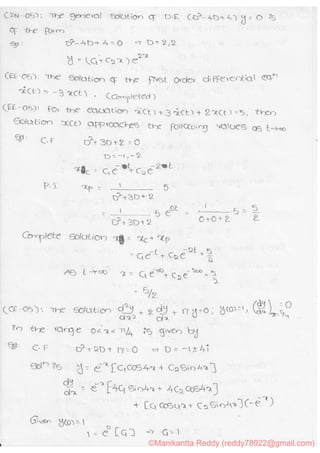 (IN-05): The general solution of D.E (D²-4D+4) y = 0 is
of the form
Sol: D²-4D+4=0 ⇒ D=2,2
y = (C₁+C₂x)e^2x
(EE-05): The solution of the first order differential eqⁿ
ẋ(t) = -3x(t), (Completed)
(EE-05): For the equation ẍ(t)+3ẋ(t)+2x(t)=5, then
Solution x(t) approaches the following values as t→∞
Sol: C.F D²+3D+2=0
D=-1,-2
x = C₁e^-t + C₂e^-2t
P.I xp = 1/(D²+3D+2) · 5
= 1/(D²+3D+2) · 5·e^0t = 1/(0+0+2) · 5 = 5/2
Complete solution x = xc + xp
= C₁e^-t + C₂e^-2t + 5/2
As t→∞ x = C₁e^-∞ + C₂e^-∞ + 5/2
= 5/2
(CE-05): The solution d²y/dx² + 2 dy/dx + 17y=0; y(0)=1, (dy/dx)x=π/4 = 0
in the range 0<x<π/4 is given by
Sol: C.F D²+2D+17=0 ⇒ D=-1±4i
Solⁿ is y = e^-x [C₁cos4x + C₂sin4x]
dy/dx = e^-x [4C₁sin4x + 4C₂cos4x]
+ [C₁cos4x + C₂sin4x](-e^-x)
Given y(0)=1
1 = e⁰[C₁] ⇒ C₁=1
©Manikantta Reddy (reddy78922@gmail.com)